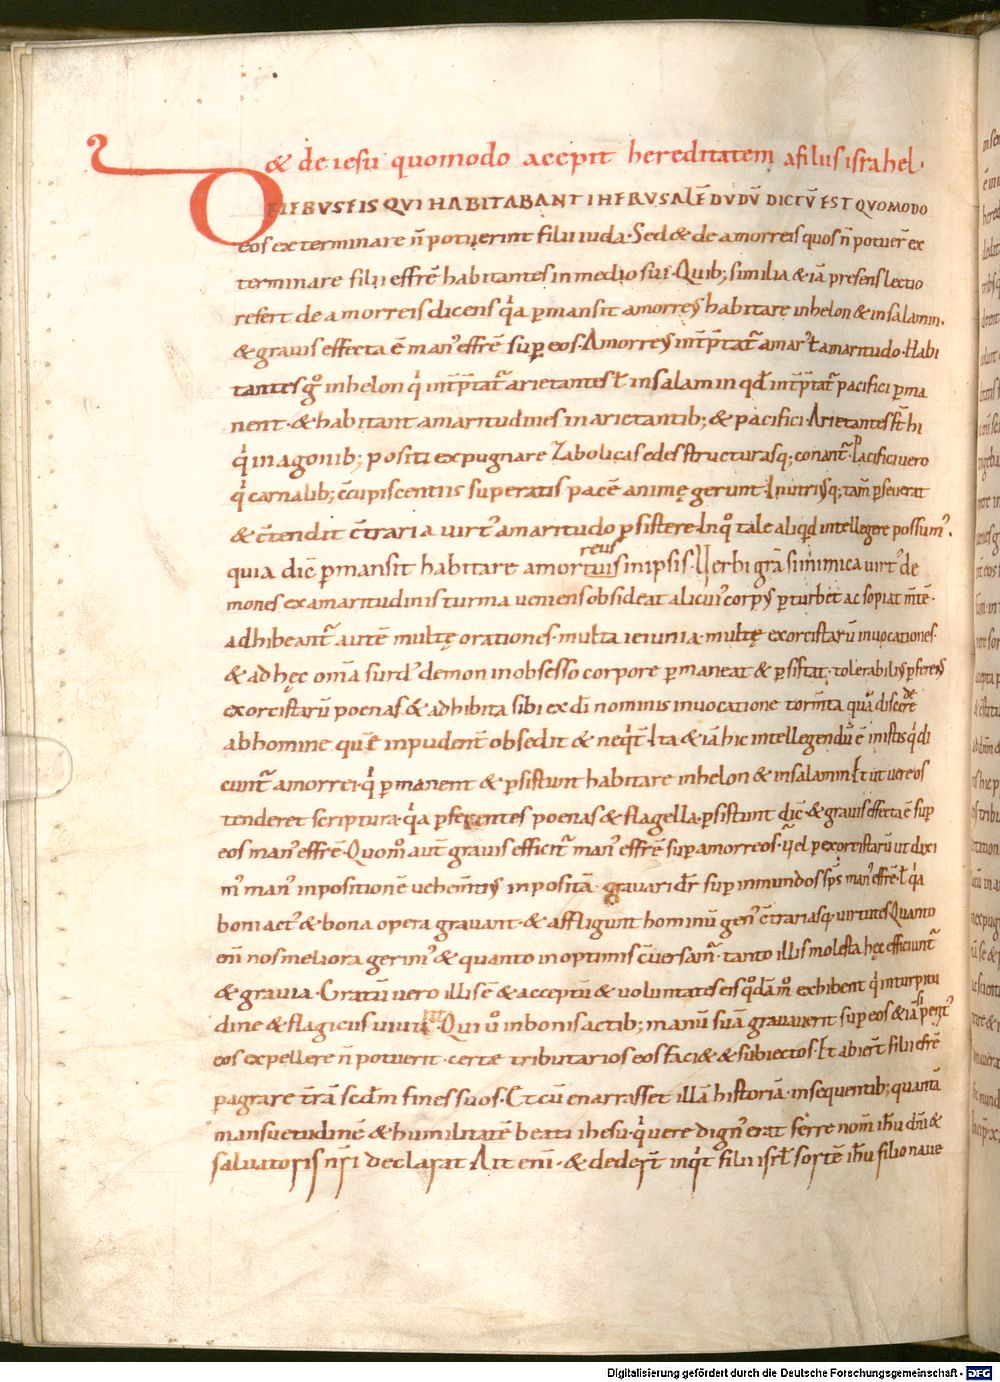 & de iesu quomodo accepit hereditatem afiliis israhel.
DE IEBUSEIS QUI HABITABANT IHERUSALĒ DVDŪ DICTŪ EST QVOMODO
eos exterminare n̄ potuerint filii iuda. Sed & de amorreis quos n̄ potuer̄ ex
terminare filii effrē habitantes in medio sui. Quib; similia & iā presens lectio
refert de amorreis dicens qͥa p̱mansit amorreꝰ habitare inhelon & insalamin.
& grauis effecta ē manꝰ effrē sup̱ eos. Amorreꝰ int̄p̄tat᷑ amarꝰ ł amaritudo. Habi
tantes gͦ inhelon qͥ int̄p̄tat᷑ arietantes ł insalamin qd̄ int̄p̄tat᷑ pacifici p̱ma
nent. & habitant amaritudines in arietantib; & pacifici. Arietantes st̄ hi
qͥ in agonib; positi expugnare zabolicas sedes structurasq; conant᷑. Pacifici uero
qͥ carnalib; c̄cupiscentiis superatis pacē animę gerunt. In utrisq; tam̄ p̱seuerat
& c̄tendit c̄traria uirtꝰ amaritudo p̱sistere. In qͦ tale aliqͥd intellegere possumꝰ.
quia dic̄ p̱mansit habitare amortuis reus in ipsis. Uerbi grā si inimica uirtꝰ de
mones ex amaritudinis turma ueniens obsideat alicuiꝰ corpꝰ p̱turbet ac sopiat m̄tē.
adhibeant᷑ autē multę orationes. multa ieiunia. multę exorcistarū inuocationes.
& ad hęc om̄a surdꝰ demon in obsesso corpore p̱maneat & p̱sistat. tolerabiliꝰ p̱ferens
exorcistarū poenas & adhibita sibi ex dī nominis inuocatione torm̄ta quā discere de
ab homine quē inpudent̄ obsedit & neqͥt̄. Ita & iā hic intellegendū ē in istis qͥ di
cunt᷑ amorrei. qͥ p̱manent & p̱sistunt habitare inhelon & insalamin. Et ut uere os
tenderet scriptura. qͥa p̱ferentes poenas & flagella. p̱sistunt dic̄. & grauis effecta ē sup̱
eos manꝰ effrē. Quom̊ aut̄ grauis efficit᷑ manꝰ effrē sup̱ amorreos. uel p̱ exorcistarū ut dixi
mꝰ manꝰ inpositionē uehem̄tiꝰ inpositā grauari dr̄ sup̱ inmundos sp̄s manꝰ effrē. ł qͥa
boni actꝰ & bona opera grauant. & affligunt hominū genꝰ c̄trariasq; uirtutes. Quanto
enī nos meliora gerimꝰ & quanto in optimis c̄uersam᷑. tanto illis molesta hęc efficiunt᷑
& grauia. Gratū uero illis ē & acceptū & uoluntates eis qͦdāmͦ exhibent qͥ in turpitu
dine & flagiciis uiuūnt. Qui ů in bonis actib; manū suā grauauerit sup̱ eos & iā si penitꝰ
eos expellere n̄ potuerit. certe tributarios eos faci& & subiectos. Et abier̄t filii efrē
p̱agrare t̄rā scd̄m fines suos. Et cū enarrasset illā historiā. in sequentib; quantā
mansuetudinē & humilitatē beati ihesu. qͥ uere dignꝰ erat ferre nom̄ ihū dn̄i &
saluatoris nr̄i declarat. Ait enī. & deder̄t inqͥt filii isrł sortē ihū filio naue